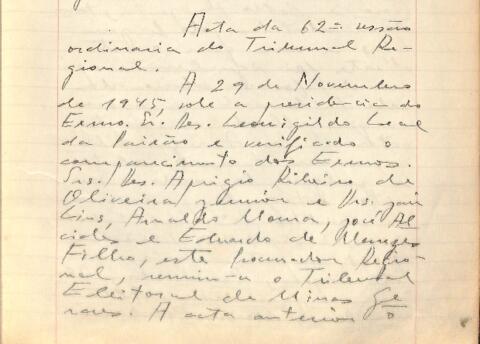 Acta da 62ª sessão
ordinaria do Tribunal Re-
gional.
A 29 de Novembro
de 1945, sob a presidencia do
Exmo. Sr. Des. Leovigildo Leal
da Paixão e verificado o
comparecimento dos Exmos.
Srs. Des. Aprigio Ribeiro de
Oliveira Junior e Drs. José
Lins, Arnaldo Moura, José Al-
cides e Eduardo de Menezes
Filho, este Procurador Regio-
nal, reuniu-se o Tribunal
Eleitoral de Minas Ge-
raes. A acta anterior